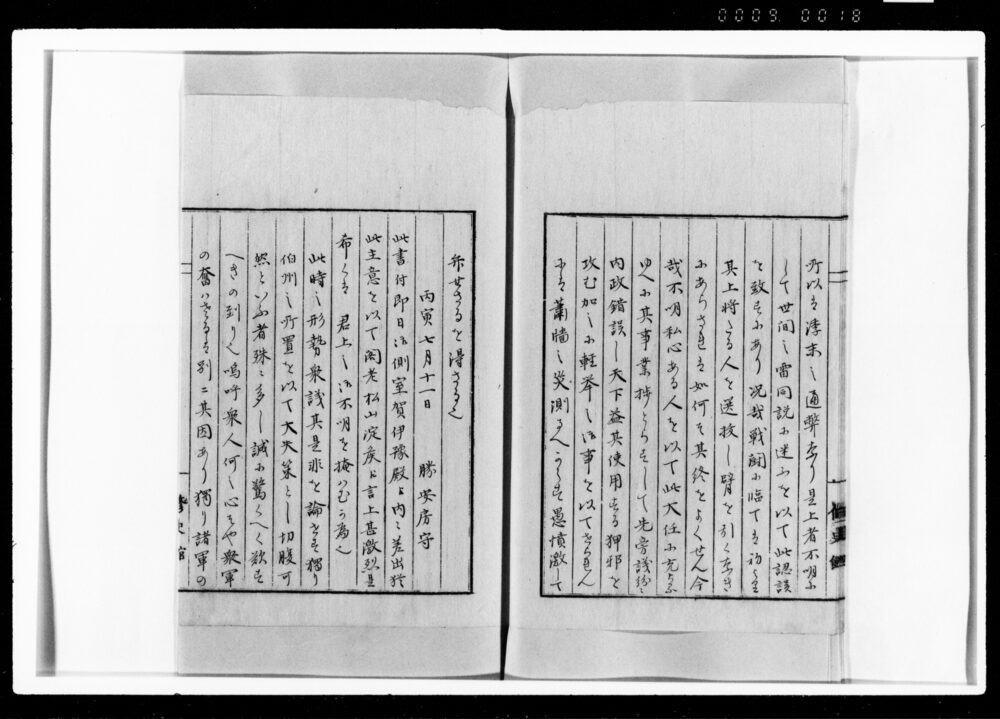 0009 0018
所以は澆末之通弊なり是上者不明に
して世間之雷同説に迷ふを以て此認誤
を致すにあり况哉戦闘に臨ては初より
其上将たる人を選抜し臂を引くなき
にあらされは如何そ其終をよくせん今
哉不明私心ある人を以て此大任に充る
ゆへに其事業捗とらすして先旁議紛々
内政錯誤し天下益其使用する狎邪を
攻む加之に軽挙之御事を以てせられん
には蕭墻之災測るへからす愚憤激して
弁せさるを得さる也
丙寅七月十一日　勝安房守
此書付即日御側室賀伊豫殿より内々差出於
此主意を以て閣老松山淀侯に言上甚激烈是
希くは君上之御不明を掩はむか為也
此時之形勢衆議其是非を論せす獨り
伯州之所置を以て大失策とし切腹可
然といふ者殊に多し誠に驚くへく歎す
へきの到りなり嗚呼衆人何之心そや衆軍
の奮はさるは別に其因あり獨り諸軍の